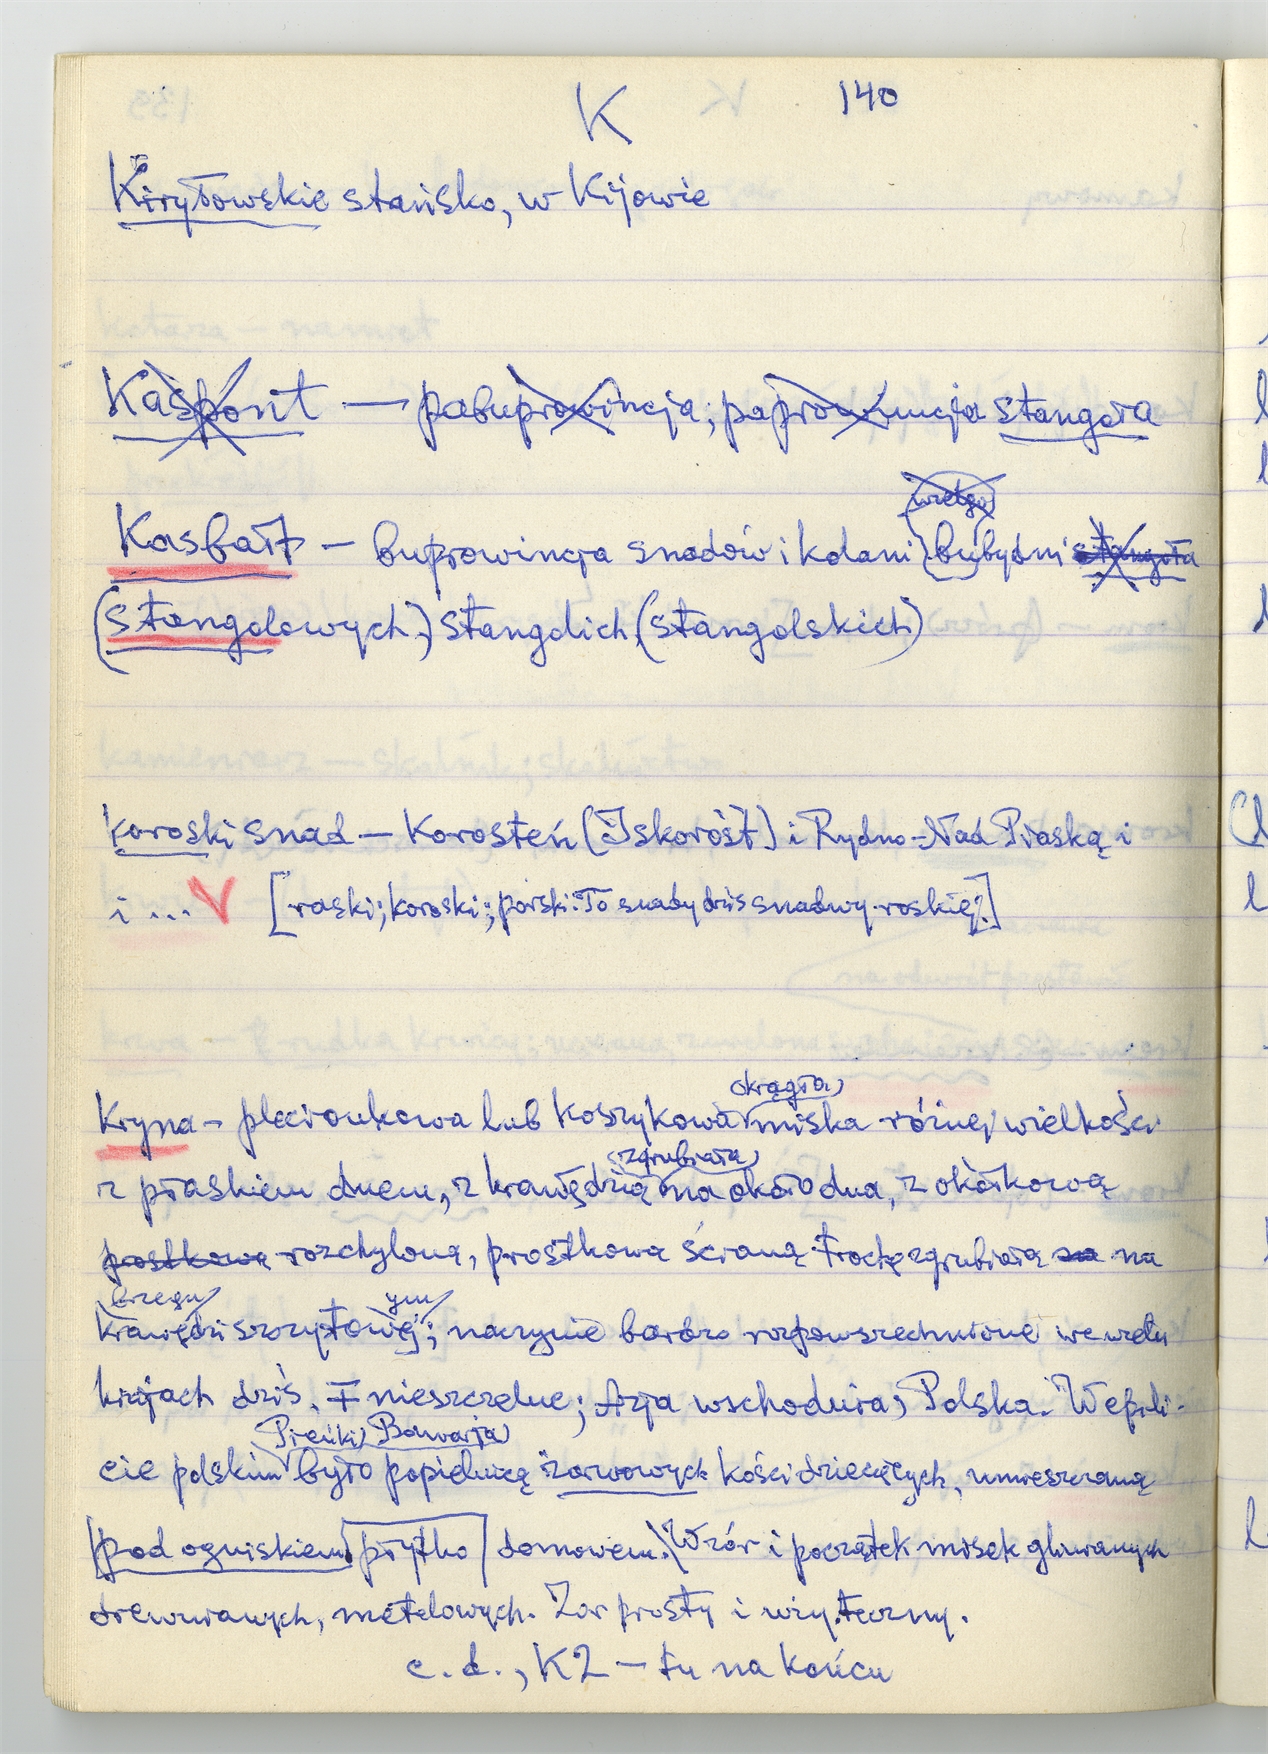 K 140
Kiryłowskie stańsko, w Kijowie
Kaspont — pabuprowincja; paprowincja stangoła
Kasbałt — buprowincja snadów i kolani bubydni
wielgo
(stangolowych,) stangolich, (stangolskich)
koroski snad — Korosteń (Iskorość) i Rydno-Nad Płaską i
i ... V [raski; koroski; porski: To snady dziś snadwy-roskiej.]
okrągła
Kryna – plecionkowa lub koszykowa miska różnej wielkości
zgrubiałą
z płaskiem dnem, z krawędzią na około dna, z okółkową
postkową rozchyloną, prostkową ścianą. Trochę zgrubiałą na
brzegu ym
krawędzi szczytowej; naczynie bardzo rozpowszechnione we wielu
krajach dziś. I nieszczelne; Azja wschodnia, Polska. W epoli-
Pieńki, Bawarja
cie polskim było popielnicą żarowych kości dziecięcych, umieszczaną
pod ogniskiem płytko domowem. Wzór i początek misek glinianych
drewnianych, metelowych. Zar prosty i użyteczny.
c.d., K2 — tu na końcu